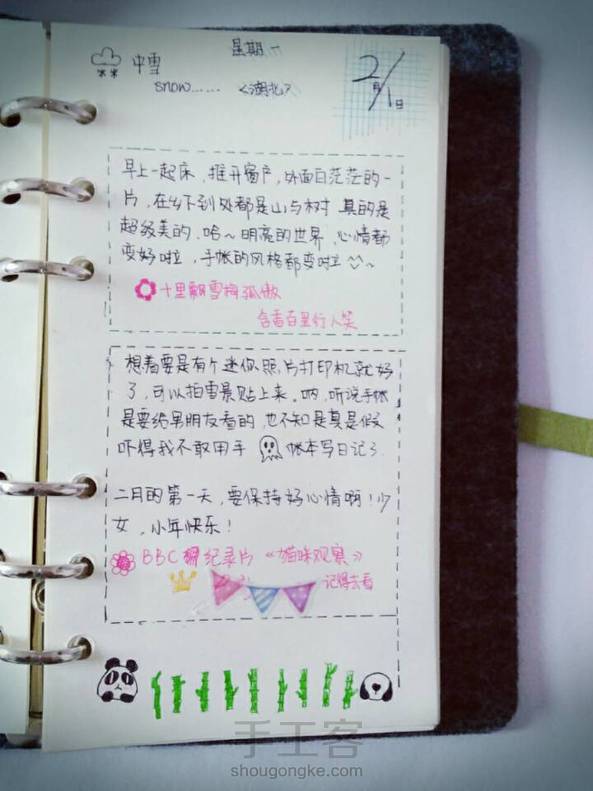 中雪
星期一
snow...... <湖北>
2月/1日
早上一起床，推开窗户，外面白茫茫的一
片，在乡下到处都是山与树 真的是
超级美的，哈～明亮的世界，心情都
变好啦，手帐的风格都变啦～
十里飘雪梅孤傲
含香百里行人笑
想着要是有个迷你照片打印机就好
了，可以拍雪景贴上来。呐，听说手帐
是要给男朋友看的，也不知是真是假
吓得我不敢用手帐本写日记了.
二月的第一天，要保持好心情啊！少
女，小年快乐！
BBC 纪录片《猫咪观察》
记得去看
手工客
shougongke.com